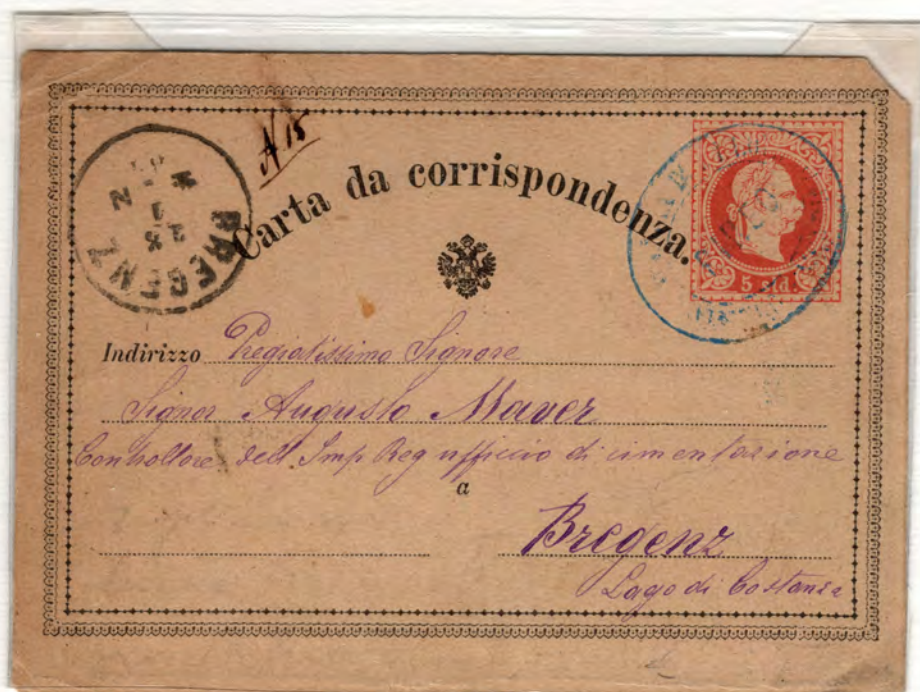 N 15
Carta da corrispondenza.
BREGENZ
5 sld.
Indirizzo Pregiatissimo Signore
Signor Augusto Maver
Controllore dell Imp Reg ufficio di cimentazione
a
Bregenz
Lago di Costanza